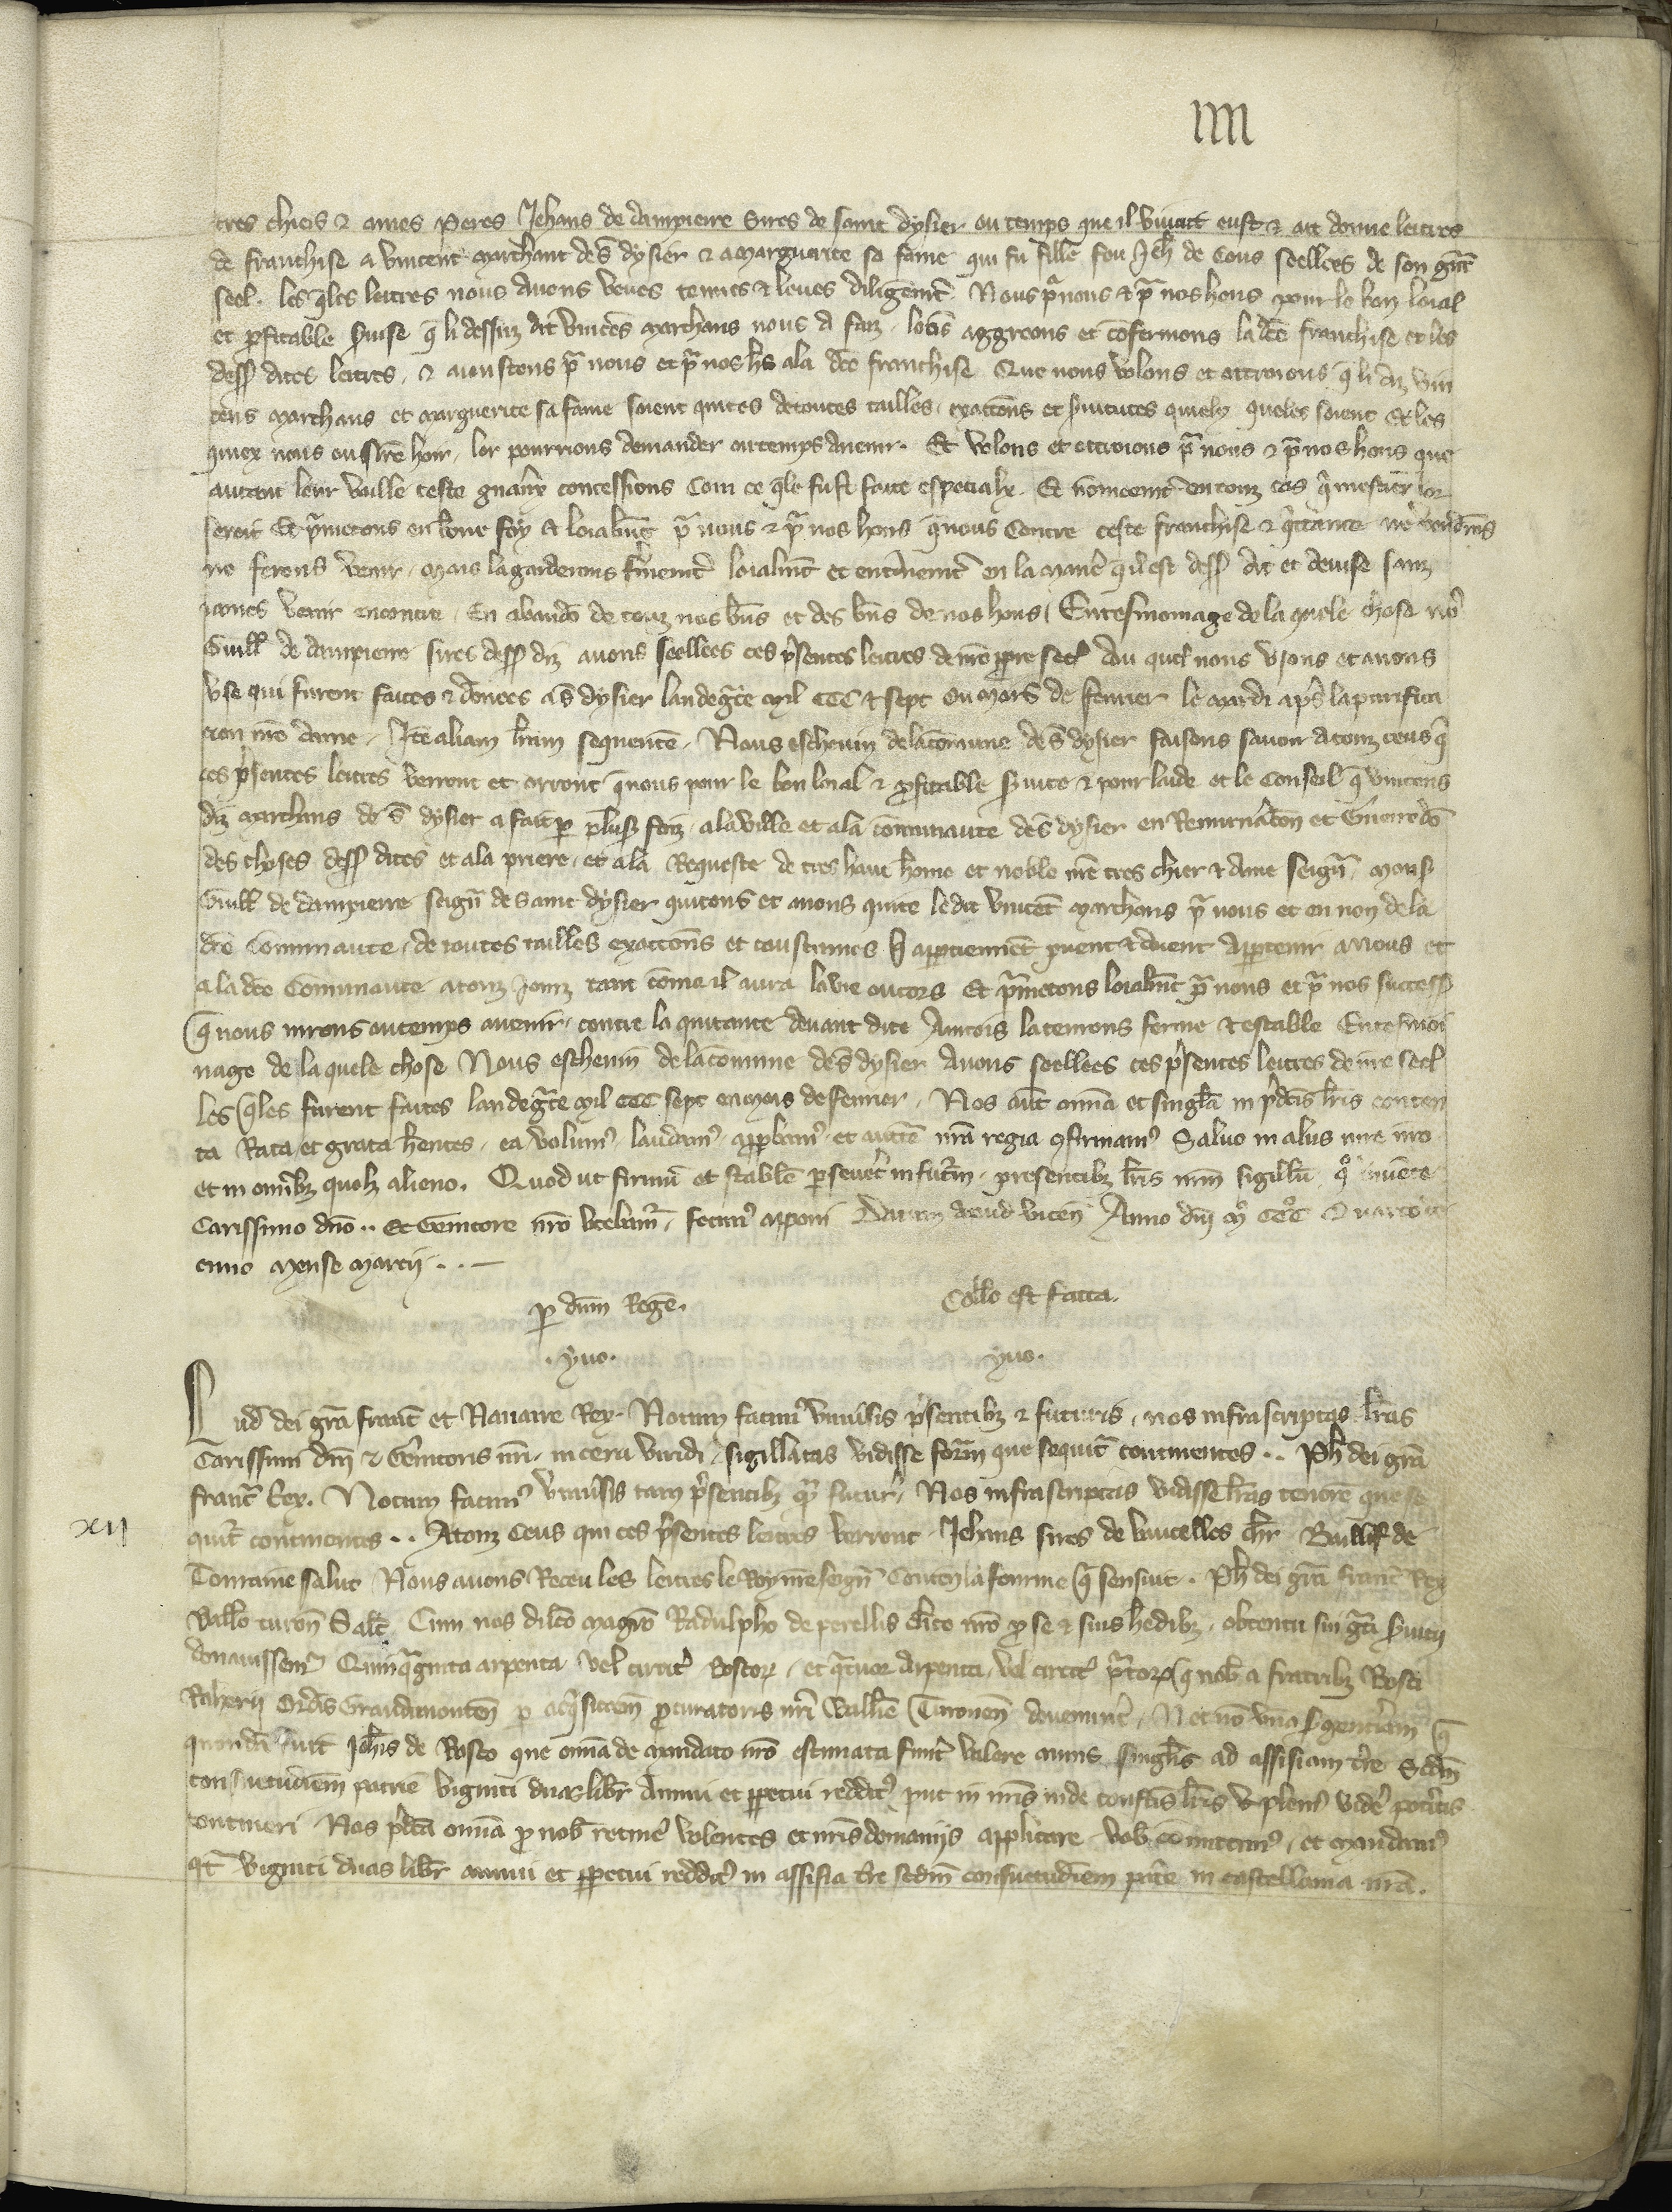 IIII
tres chiers & ames Peres Jehans de dampierre Sires de saint dysier ou temps que il vivait eust & ait donne lettres
de franchise a vincent marchant de S dysier & a marguerite sa fame qui fu fille feu Jeh de Cous seellees de son gnt
seel. les qles lettres nous avons veues tenues & leues diligemt. Nous pr nous & pr nos hoirs pour le bon loial
et pfitable suise q li dessuz dit vincens marchans nous a faiz. loons aggreons et cofermons la dce franchise et les
dess dites lettres. & aioustons pr nous et pr nos hs a la dce franchise Que nous volons et ottroions q li diz vin
cens marchans et marguerite sa fame soient quites de toutes tailles, exactons et suitutes quiely queles soient & les
quiex nous ou nre hoir, lor pourrions demander ou temps avenir. Et volons et ottroions pr nous & pr nos hoirs que
autant leur vaille ceste gnaux concessions Com ce qle fust faite especialx. Et nomeemt en touz cas q mestier lor
seroit Et pmetons en bone foy & loialmt pr nous & pr nos hoirs q nous Contre ceste franchise & qttance ne vendrons
ne ferons venir. mais la garderons fmemt loialmt et entinemt en la maniere qil est dess dit et devise sanz
iames venir encontre. En abando de touz nos bns et des bns de nos hoirs. En tesmoinage de la quele chose no
Guill de dampierre sires dess diz avons seellees ces psentes lettres de nre ppre seel Dou quel nous usons et avons
use qui furent faites & donees a S dysier lan de gce mil CCC & sept ou mois de fevrier le mardi aps la purifica
cion nre dame. Ite aliam lram sequente. Nous eschevin de la comune de S dysier faisons savoir a touz ceus q
ces psentes lettres verront et orront q nous pour le bon loial & pfitable suice & pour laide et le Conseil q vincens
diz marchans de S dysier a fait p plus foiz. a la ville et a la comunaute de S dysier en Remunaton et Guerredo
des choses dess dites et a la priere. et a la Requeste de tres haut home et noble nre tres chier & ame seign. mons
Guill de dampierre seign de saint dysier quitons et avons quite le dit vincet marchans pr nous et en non de la
dce Comunaute. de toutes tailles exactons et coustumes q aptienet puent & doient aptenir a nous et
a la dce Comunaute a touz Jourz tant come il aura la vie ou cors Et pmetons loialmt pr nous et pr nos success
q nous nirons ou temps avenir. contre la quitance devant dite Aincois la tenrons ferme & estable En tesmoi
nage de la quele chose Nous eschevin de la comune de S dysier avons seellees ces psentes lettres de nre seel
les qles furent faites lan de gce mil CCC sept en mois de fevrier. Nos aut omia et singla in pdcis lris conten
ta Rata et grata hentes. ea volum laudam appbam et aucte nra regia confirmam Salvo in aliis iure nro
et in omibz quolz alieno. Quod ut firmu et stabile perseveret in futm. presentibz lris nrm sigillu quo vivente
Carissimo dno .. Et Genitore nro utebamr. fecim apponi Datum apud vicen Anno dni mo CCCo Quarto de
cimo mense marcij . . —
p dnm Rege. Collo est facta.
. yvo. yvo.
Lud dei gra franc et Navarre Rex. Notum facim univsis psentibz & futuris. nos infrascriptas lras
Carissimi dni & Genitoris nri. in cera viridi sigillatas vidisse formam que sequitr continentes .. Ph dei gra
franc Rex. Notum facim univsis tam psentibz q futur. Nos infrascriptas vidisse lras tenore que se
XII
quit continentes .. A touz Ceus qui ces psentes lettres verront. Jehans sires de bruicelles chr. Baillif de
Toutaine salut Nous avons Receu les lettres le Roy nre seign Conten la fourme q sensuit. Ph dei gra franc Rex
Ballo turon Salt. Cum nos dilco magro Radulpho de perellis clico nro p se & suis hedibz. obtentu sui gti suicij
donavissem Quinqginta arpenta vel circit Bosco. et qtuor arpenta. vel circit pto q nob a fratribz Bosci
Raherij Ordis Grandimonten p acqsitem pcuratoris nri Ballie Turonen devenint. Necno una sgentiam q
quonda fuit Johis de Bosco que omia de mandato nro estimata funt valere annis singlis ad assisiam tre Scdm
consuetudiem patrie viginti duas libr annui et ppetui reddit put in nris inde confcis lris uplen videre potitis
contineri Nos pdca omia p nob retine volentes et nris domanijs applicare vob comittim. et mandam
qt viginti duas libr annui et ppetui reddit in assisia tre scdm consuetudiem patie in castellania nra.